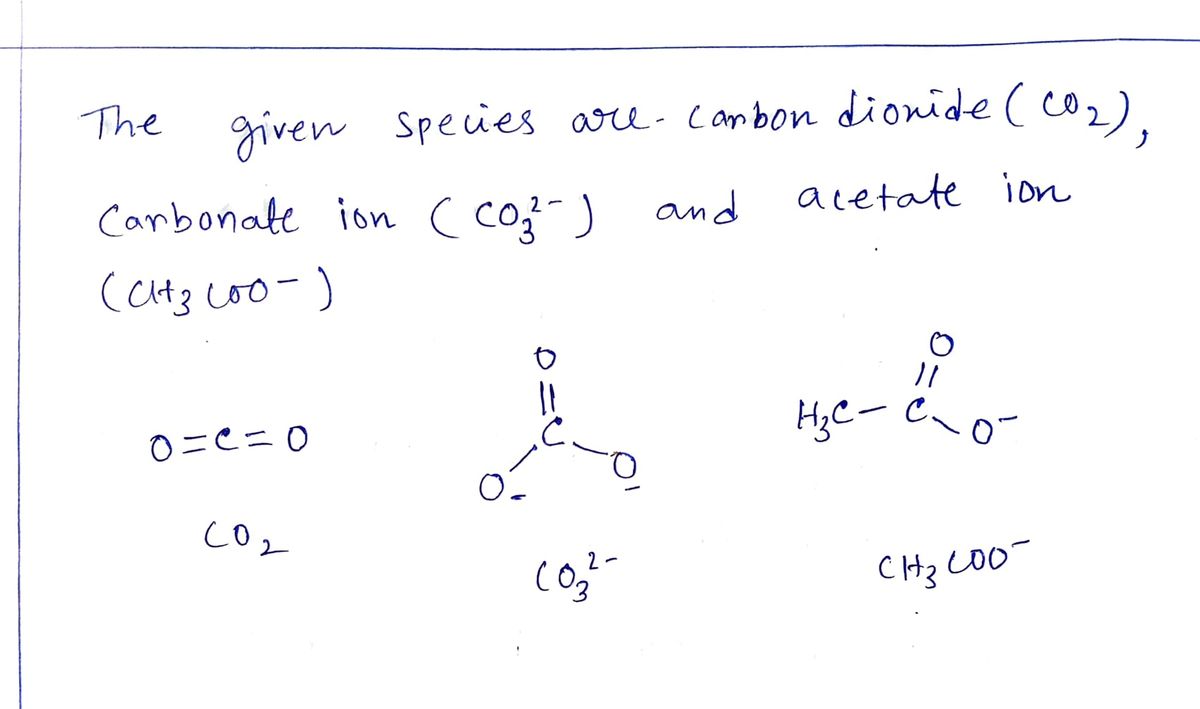 The given species are - Carbon dioxide (CO2),
Carbonate ion (CO3^2-) and acetate ion
(CH3COO-)
O
||
O=C=O
C
O- O-
O
||
H3C-C-O-
CO2
CO3^2-
CH3COO-